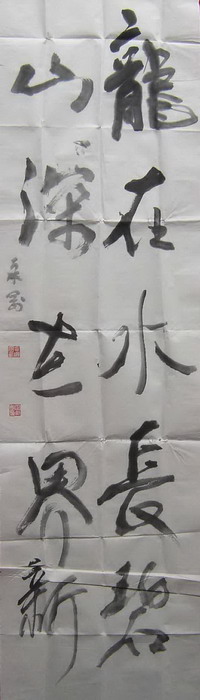 龍在水長碧
山深土界新